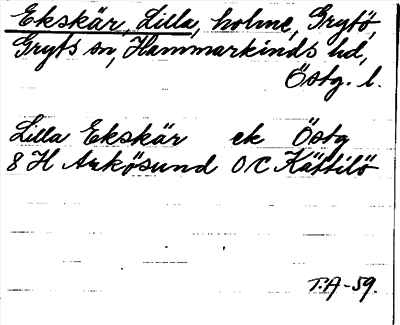 Ekskär, Lilla, holme, Grytö,
Gryts sn, Hammarkinds hd,
Östg. l.
Lilla Ekskär ek Östg
8 H Arkösund O C Kättilö
T.A-59.